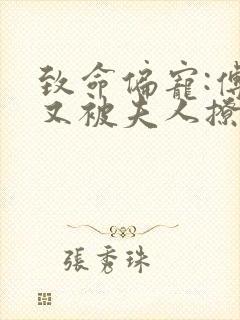 致命偏宠:傅
又被夫人撩
張秀珠